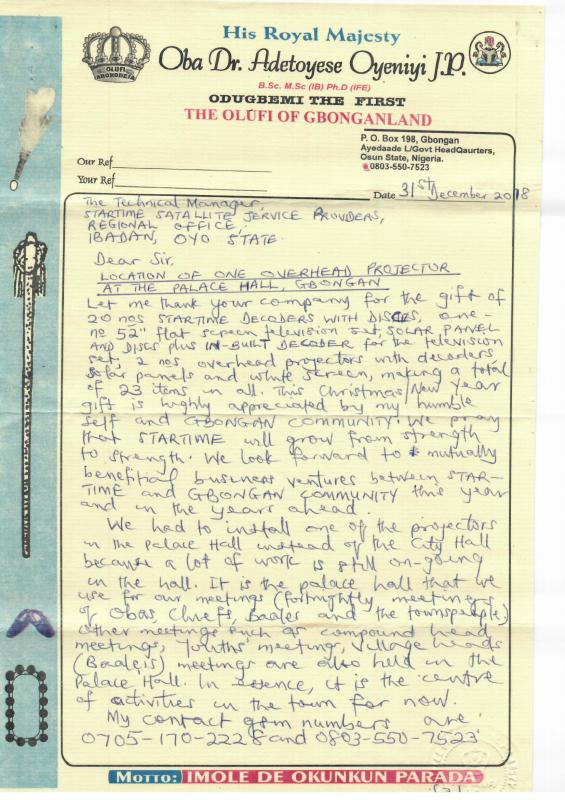 His Royal Majesty
Oba Dr. Adetoyese Oyeniyi J.P.
OLUFI
B.Sc. M.Sc (IB) Ph.D (IFE)
ODUGBEMI THE FIRST
THE OLUFI OF GBONGANLAND
P. O. Box 198, Gbongan
Ayedaade L/Govt HeadQaurters,
Osun State, Nigeria.
0803-550-7523
Our Ref
Your Ref
Date 31st December 2018
The Technical Manager,
STARTIME SATALLITE SERVICE PROVIDERS,
REGIONAL OFFICE,
IBADAN, OYO STATE.
Dear Sir,
LOCATION OF ONE OVERHEAD PROJECTOR
AT THE PALACE HALL, GBONGAN
Let me thank your company for the gift of
20 nos STARTIME DECODERS WITH DISCS, one-
no 52" flat screen television set, SOLAR PANEL
AND DISCS plus IN-BUILT DECODER for the television
set, 2 nos overhead projectors with decoders,
solar panels and white screen, making a total
of 23 items in all. This Christmas/New Year
gift is highly appreciated by my humble
self and GBONGAN COMMUNITY. We pray
that STARTIME will grow from strength
to strength. We look forward to mutually
benefitial business ventures between STAR-
TIME and GBONGAN COMMUNITY this year
and in the years ahead.
We had to install one of the projectors
in the Palace Hall instead of the City Hall
because a lot of work is still on-going
in the hall. It is the palace hall that we
use for our meetings (fortnightly meetings
of Obas, Chiefs, Baales and the townspeople)
Other meetings such as compound head
meetings, Youths' meeting, Village heads
(Baaleis) meetings are also held in the
Palace Hall. In essence, it is the centre
of activities in the town for now.
My contact gsm numbers are
0705-170-2228 and 0803-550-7523
MOTTO: IMOLE DE OKUNKUN PARADA